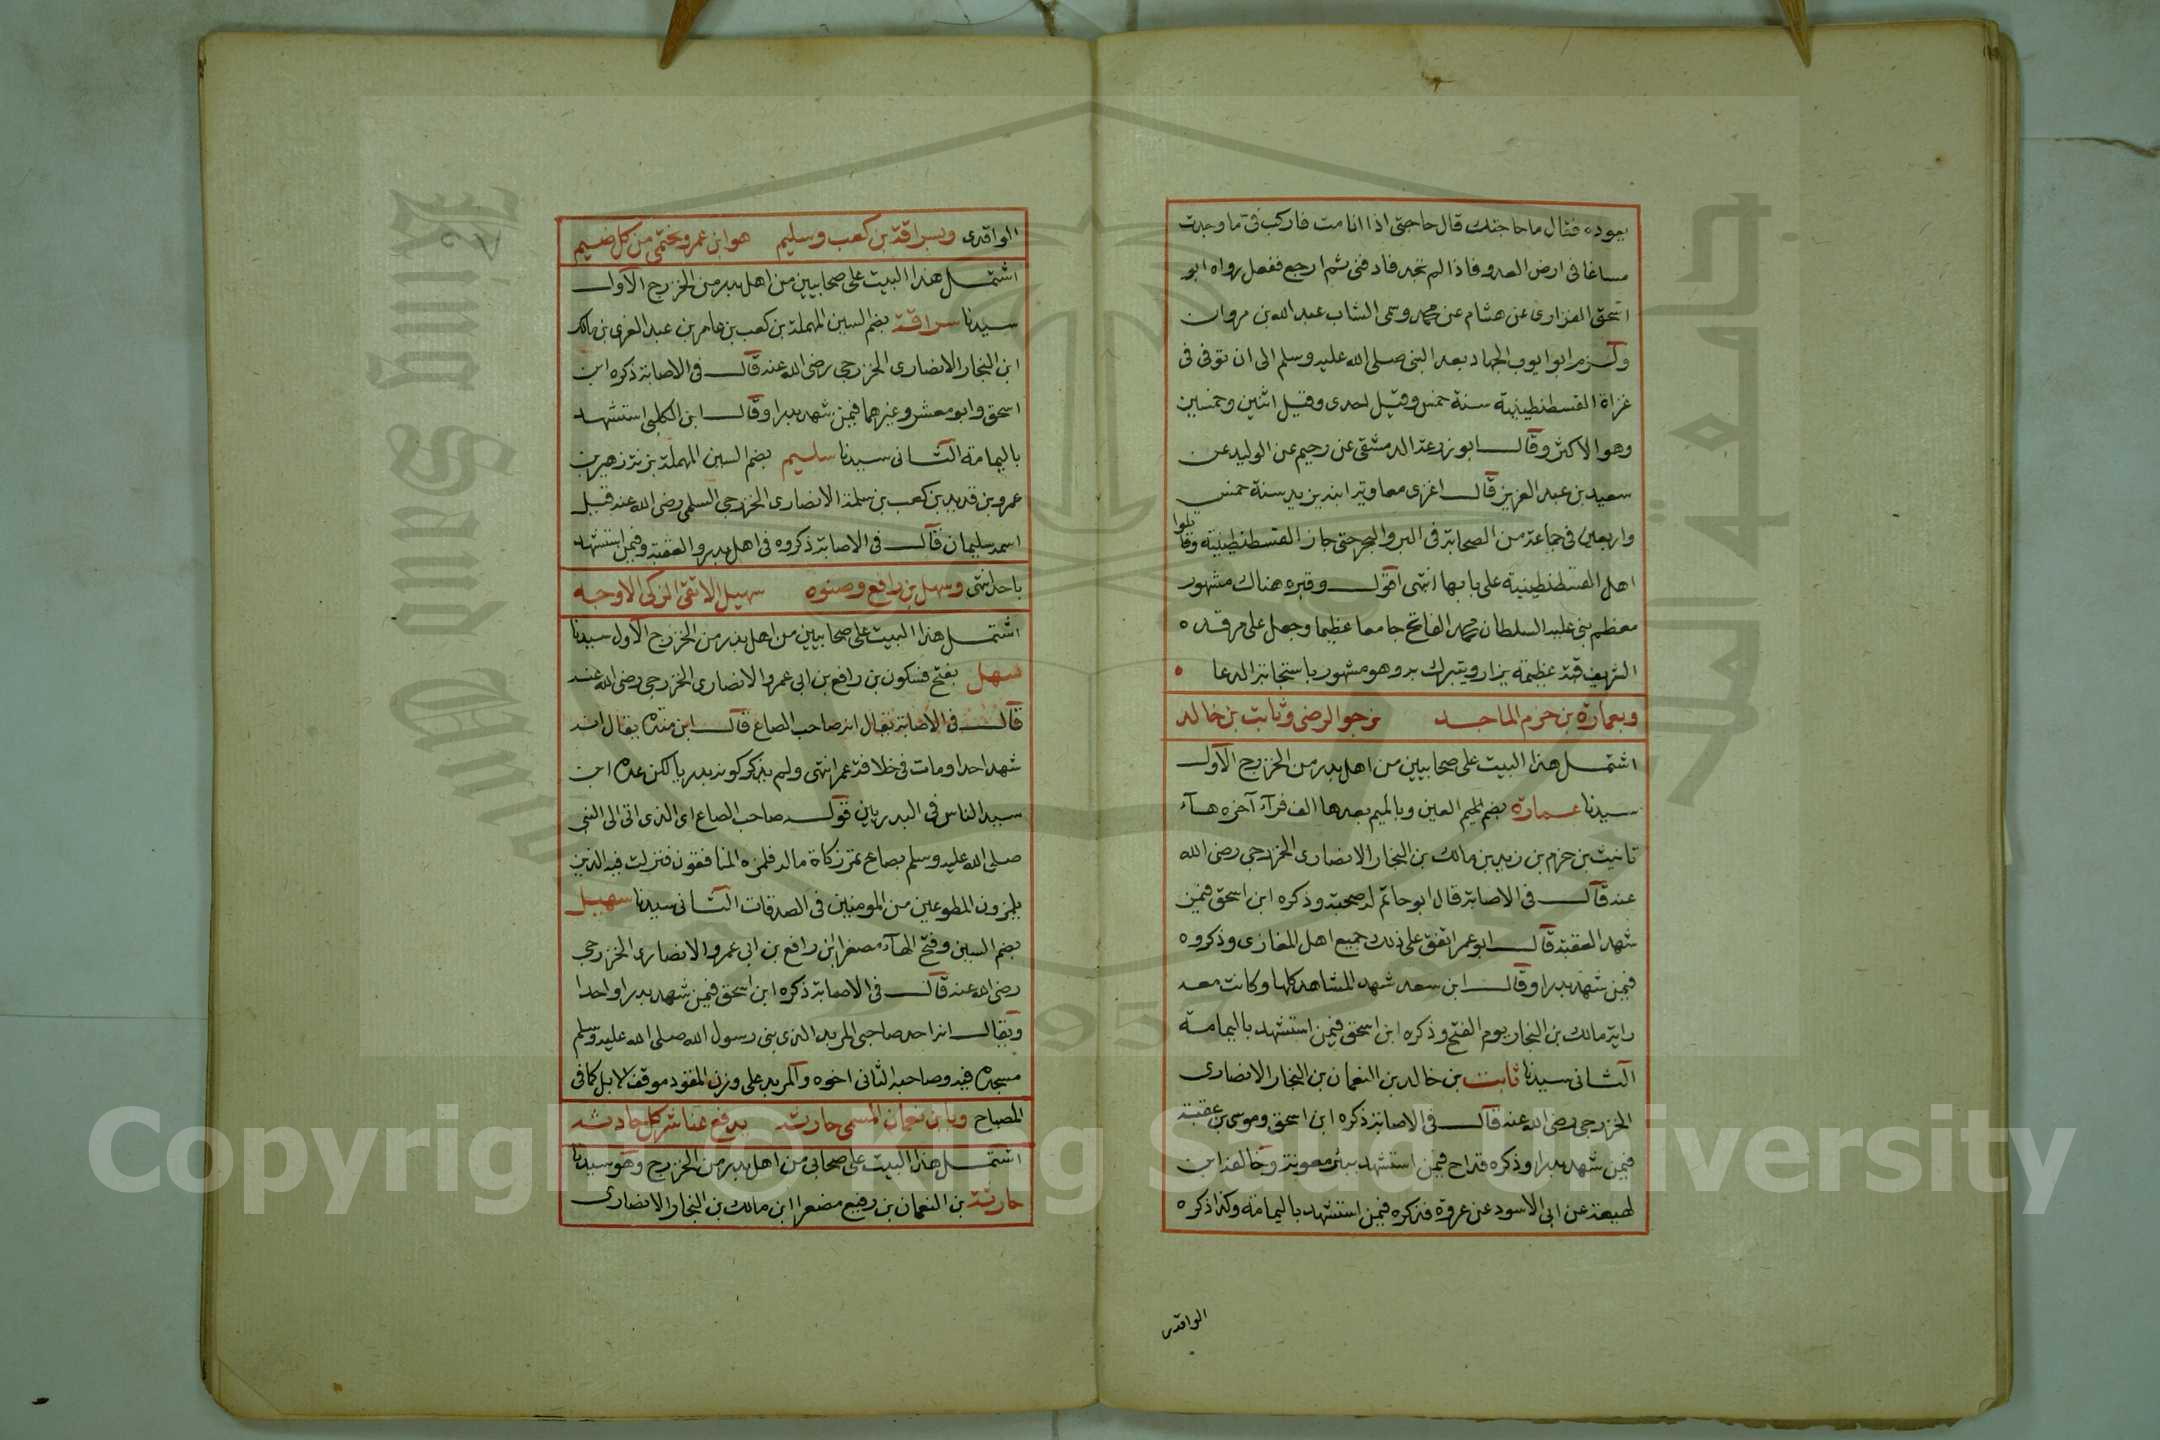 يعوده فقال ما حاجتك قال حاجتى اذا انا مت فاركب فى ما وجدت
مساغا فى ارض العدو فاذا لم تجد فادفنى ثم ارجع ففعل رواه ابو
اسحق الفزارى عن هشام عن محمد وسمى الشاب عبد الله بن مروان
ولزم ابو ايوب الجهاد بعد النبى صلى الله عليه وسلم الى ان توفى فى
غزاة القسطنطينية سنة خمس وقيل احدى وقيل اثنين وخمسين
وهو الاكثر وقال ابو زرعة الدمشقى عن رحيم عن الوليد عن
سعيد بن عبد العزيز قال اغزى معاوية ابنه يزيد سنة خمس
واربعين فى جماعة من الصحابة فى البر والبحر حتى جاز القسطنطينية وقاتلوا
اهل القسطنطينية على بابها انتهى اقول وقبره هناك مشهور
معظم بنى عليه السلطان محمد الفاتح جامعا عظيما وجعل على مرقده
الشريف قبة عظيمة يزار ويتبرك به وهو مشهور باستجابة الدعا
وبعمارة بن حزم الماجد نرجو الرضى وثابت بن خالد
اشتمل هذا البيت على صحابيين من اهل بدر من الخزرج الاول
سيدنا عمارة بضم الميم العين وبالميم بعدها الف فرآء آخره هآء
تانيث بن حزم بن زيد بن مالك بن النجار الانصارى الخزرجى رضى الله
عنه قال فى الاصابة قال ابو حاتم له صحبة وذكره ابن اسحق فيمن
شهد العقبة قال ابو عمر اتفق على ذلك جميع اهل المغازى وذكروه
فيمن شهد بدرا وقال ابن سعد شهد المشاهد كلها وكانت معه
راية مالك بن النجار يوم الفتح وذكره ابن اسحق فيمن استشهد باليمامة
الثانى سيدنا ثابت بن خالد بن النعمان بن النجار الانصارى
الخزرجى رضى الله عنه قال فى الاصابة ذكره ابن اسحق وموسى بن عقبة
فيمن شهد بدرا وذكره قداح فيمن استشهد ببئر معونة وخالفه ابن
لهيعة عن ابى الاسود عن عروة فذكره فيمن استشهد باليمامة وكذا ذكره
الواقدى
الواقدى وبسراقة بن كعب وسليم هو ابن عمرو نحتمى من كل ضيم
اشتمل هذا البيت على صحابيين من اهل بدر من الخزرج الاول
سيدنا سراقة بضم السين المهملة بن كعب بن عامر بن عبد العزى بن مالك
ابن النجار الانصارى الخزرجى رضى الله عنه قال فى الاصابة ذكره ابن
اسحق وابو معشر وغيرهما فيمن شهد بدرا وقال ابن الكلبى استشهد
باليمامة الثانى سيدنا سليم بضم السين المهملة بزنة زهير بن
عمرو بن قديد بن كعب بن سلمة الانصارى الخزرجى السلمى رضى الله عنه قيل
اسمه سليمان قال فى الاصابة ذكروه فى اهل بدر والعقبة وفيمن استشهد
باحد انتهى وسهل بن رافع وصنوه سهيل الاتقى الزكى الاوجه
اشتمل هذا البيت على صحابيين من اهل بدر من الخزرج الاول سيدنا
سهل بفتح فسكون بن رافع بن ابى عمرو الانصارى الخزرجى رضى الله عنه
قال فى الاصابة يقال انه صاحب الصاع قال ابن منده يقال انه
شهد احدا ومات فى خلافة عمر انتهى ولم يذكر كونه بدريا لكن عده ابن
سيد الناس فى البدريين قوله صاحب الصاع اى الذى اتى الى النبى
صلى الله عليه وسلم بصاع تمر زكاة ماله فلمزه المنافقون فنزلت فيه الذين
يلمزون المطوعين من المومنين فى الصدقات الثانى سيدنا سهيل
بضم السين وفتح الهآء مصغرا بن رافع بن ابى عمرو الانصارى الخزرجى
رضى الله عنه قال فى الاصابة ذكره ابن اسحق فيمن شهد بدرا واحدا
ويقال انه احد صاحبى المربد الذى بنى رسول الله صلى الله عليه وسلم
مسجده فيه وصاحبه الثانى اخوه والمربد على وزن المقود موقف الابل كما فى
المصباح وبابن نعمان المسمى حارثه يدفع عنا شر كل حادثه
اشتمل هذا البيت على صحابى من اهل بدر من الخزرج وهو سيدنا
حارثة بن النعمان بن رفيع مصغرا ابن مالك بن النجار الانصارى
Copyright © King Saud University